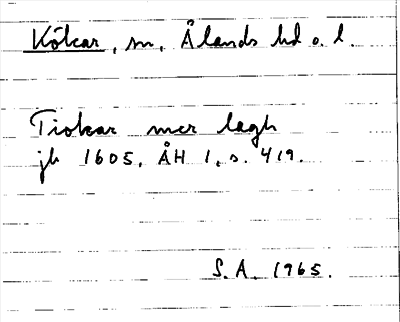 Kökar, sn, Ålands hd o. l.
Tiokar mer lagh
jb 1605, ÅH 1, s. 419.
S.A. 1965.